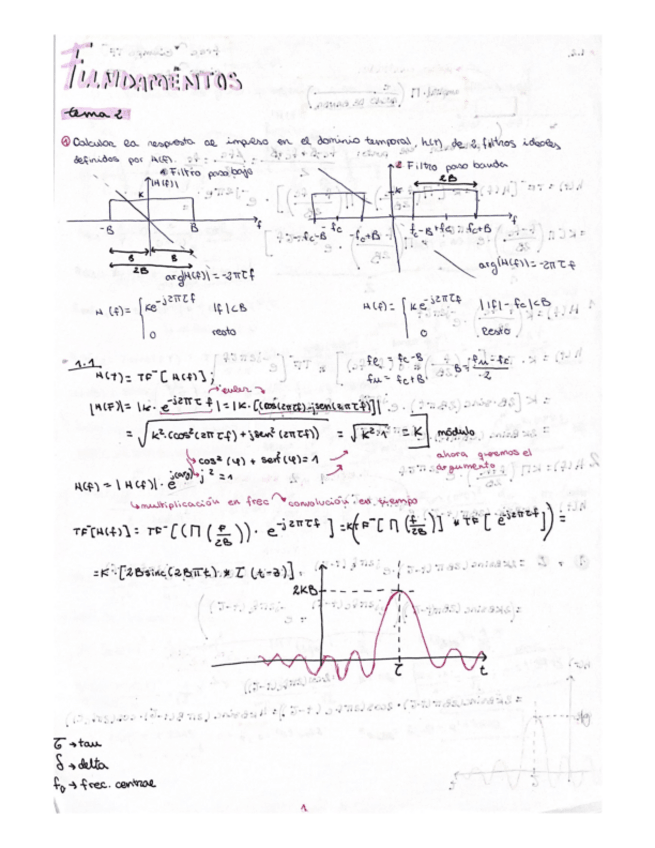 FUNDAMENTOS
tema 2
① Calcular la respuesta al impulso en el dominio temporal, h(t), de 2 filtros ideales
definidos por H(f).
① Filtro paso bajo
|H(f)|
K
-B
B
f
B
B
2B
arg|H(f)| = -2πτf
2 Filtro paso banda
2B
K
-fc-B
fc
-fc+B
fc-B
+fc
fc+B
f
arg|H(f)| = -2πτf
H(f) = { Ke^-j2πτf |f|<B
0 resto
H(f) = { Ke^-j2πτf ||f|-fc|<B
0 resto
1.1
H(t) = TF⁻[H(f)],
fc = fc-B
fu = fc+B
B = fu-fc
-2
→euler
|H(f)| = |K·e^-j2πτf| = |K·[(cos(2πτf)-jsen(2πτf)]|
= √K²·cos²(2πτf)+jsen²(2πτf)) = √K²·1 = K módulo
cos²(φ)+sen²(φ)=1
j²=1
ahora queremos el
argumento
H(f) = |H(f)|·e^j(arg)
↳multiplicación en frec → convolución en tiempo
TF⁻[H(f)] = TF⁻[(Π(f/2B))·e^-j2πτf] = K(TF⁻[Π(f/2B)] * TF[e^-j2πτf]) =
= K·[2Bsinc(2Bπt) * τ(t-∂)],
2KB
τ
t
τ → tau
δ → delta
f₀ → frec. central
1